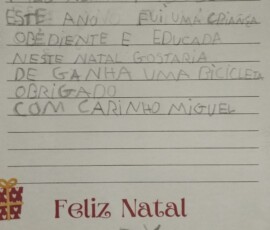 ESTE ANO FUI UMA CRIANÇA
OBEDIENTE E EDUCADA
NESTE NATAL GOSTARIA
DE GANHA UMA BICICLETA
OBRIGADO
COM CARINHO MIGUEL
Feliz Natal